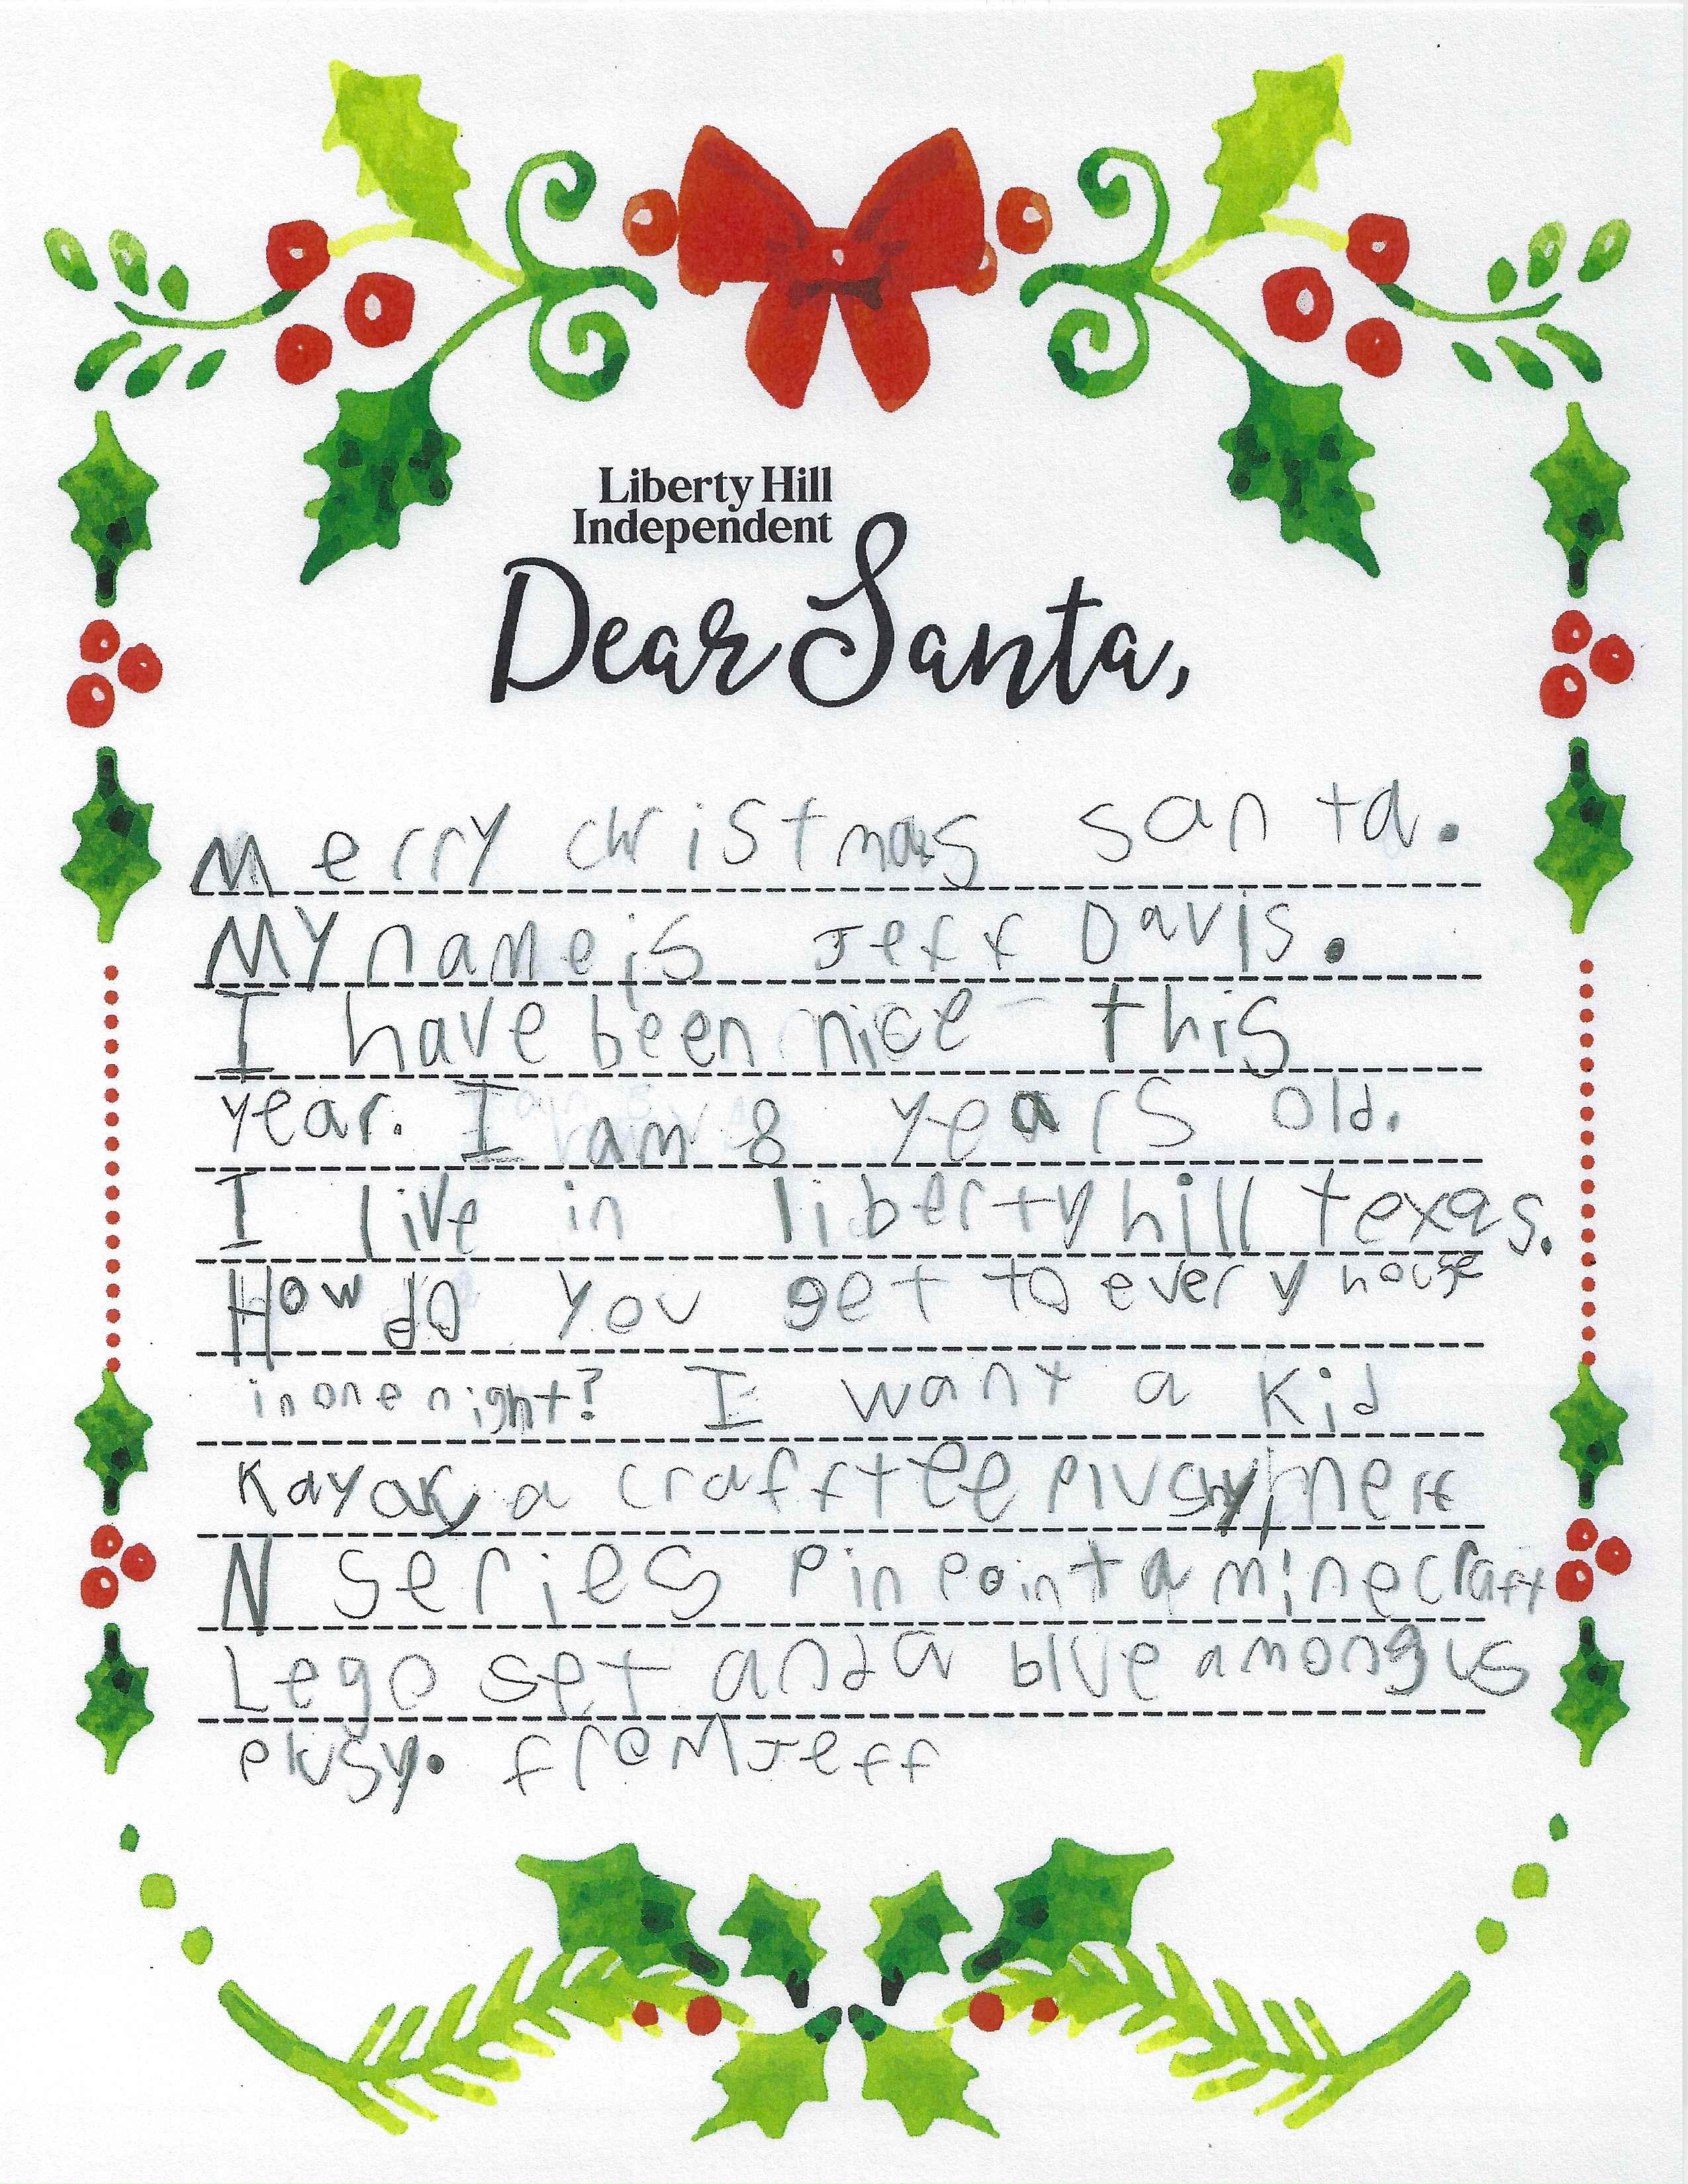 Liberty Hill
Independent
Dear Santa,
Merry christmas santa.
My name is Jeff Davis.
I have been nice this
year. I am 8 years old.
I live in liberty hill texas.
How do you get to every house
in one night? I want a Kid
Kayak, a craftee plushy, nerf
N series pinpoint a minecraft
Lego set and a blue among us
plusy. from Jeff